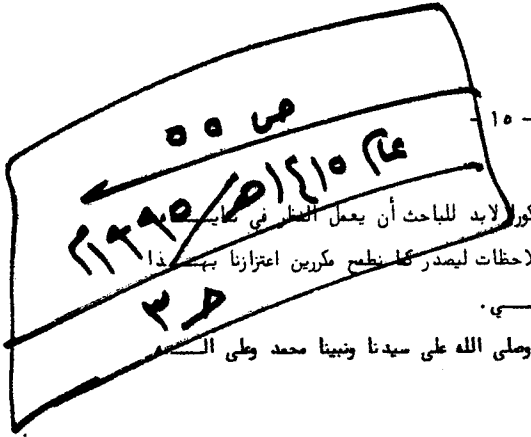 - ١٥ -
ص ٥٥
عام ١٤١٥هـ/١٩٩٥م
كورا لابد للباحث أن يعمل النظر في
لاحظات ليصدر كما نطمح مكررين اعتزازنا بهـــذا
ـــي .
وصلى الله على سيدنا ونبينا محمد وعلى الـــه
ط ٣